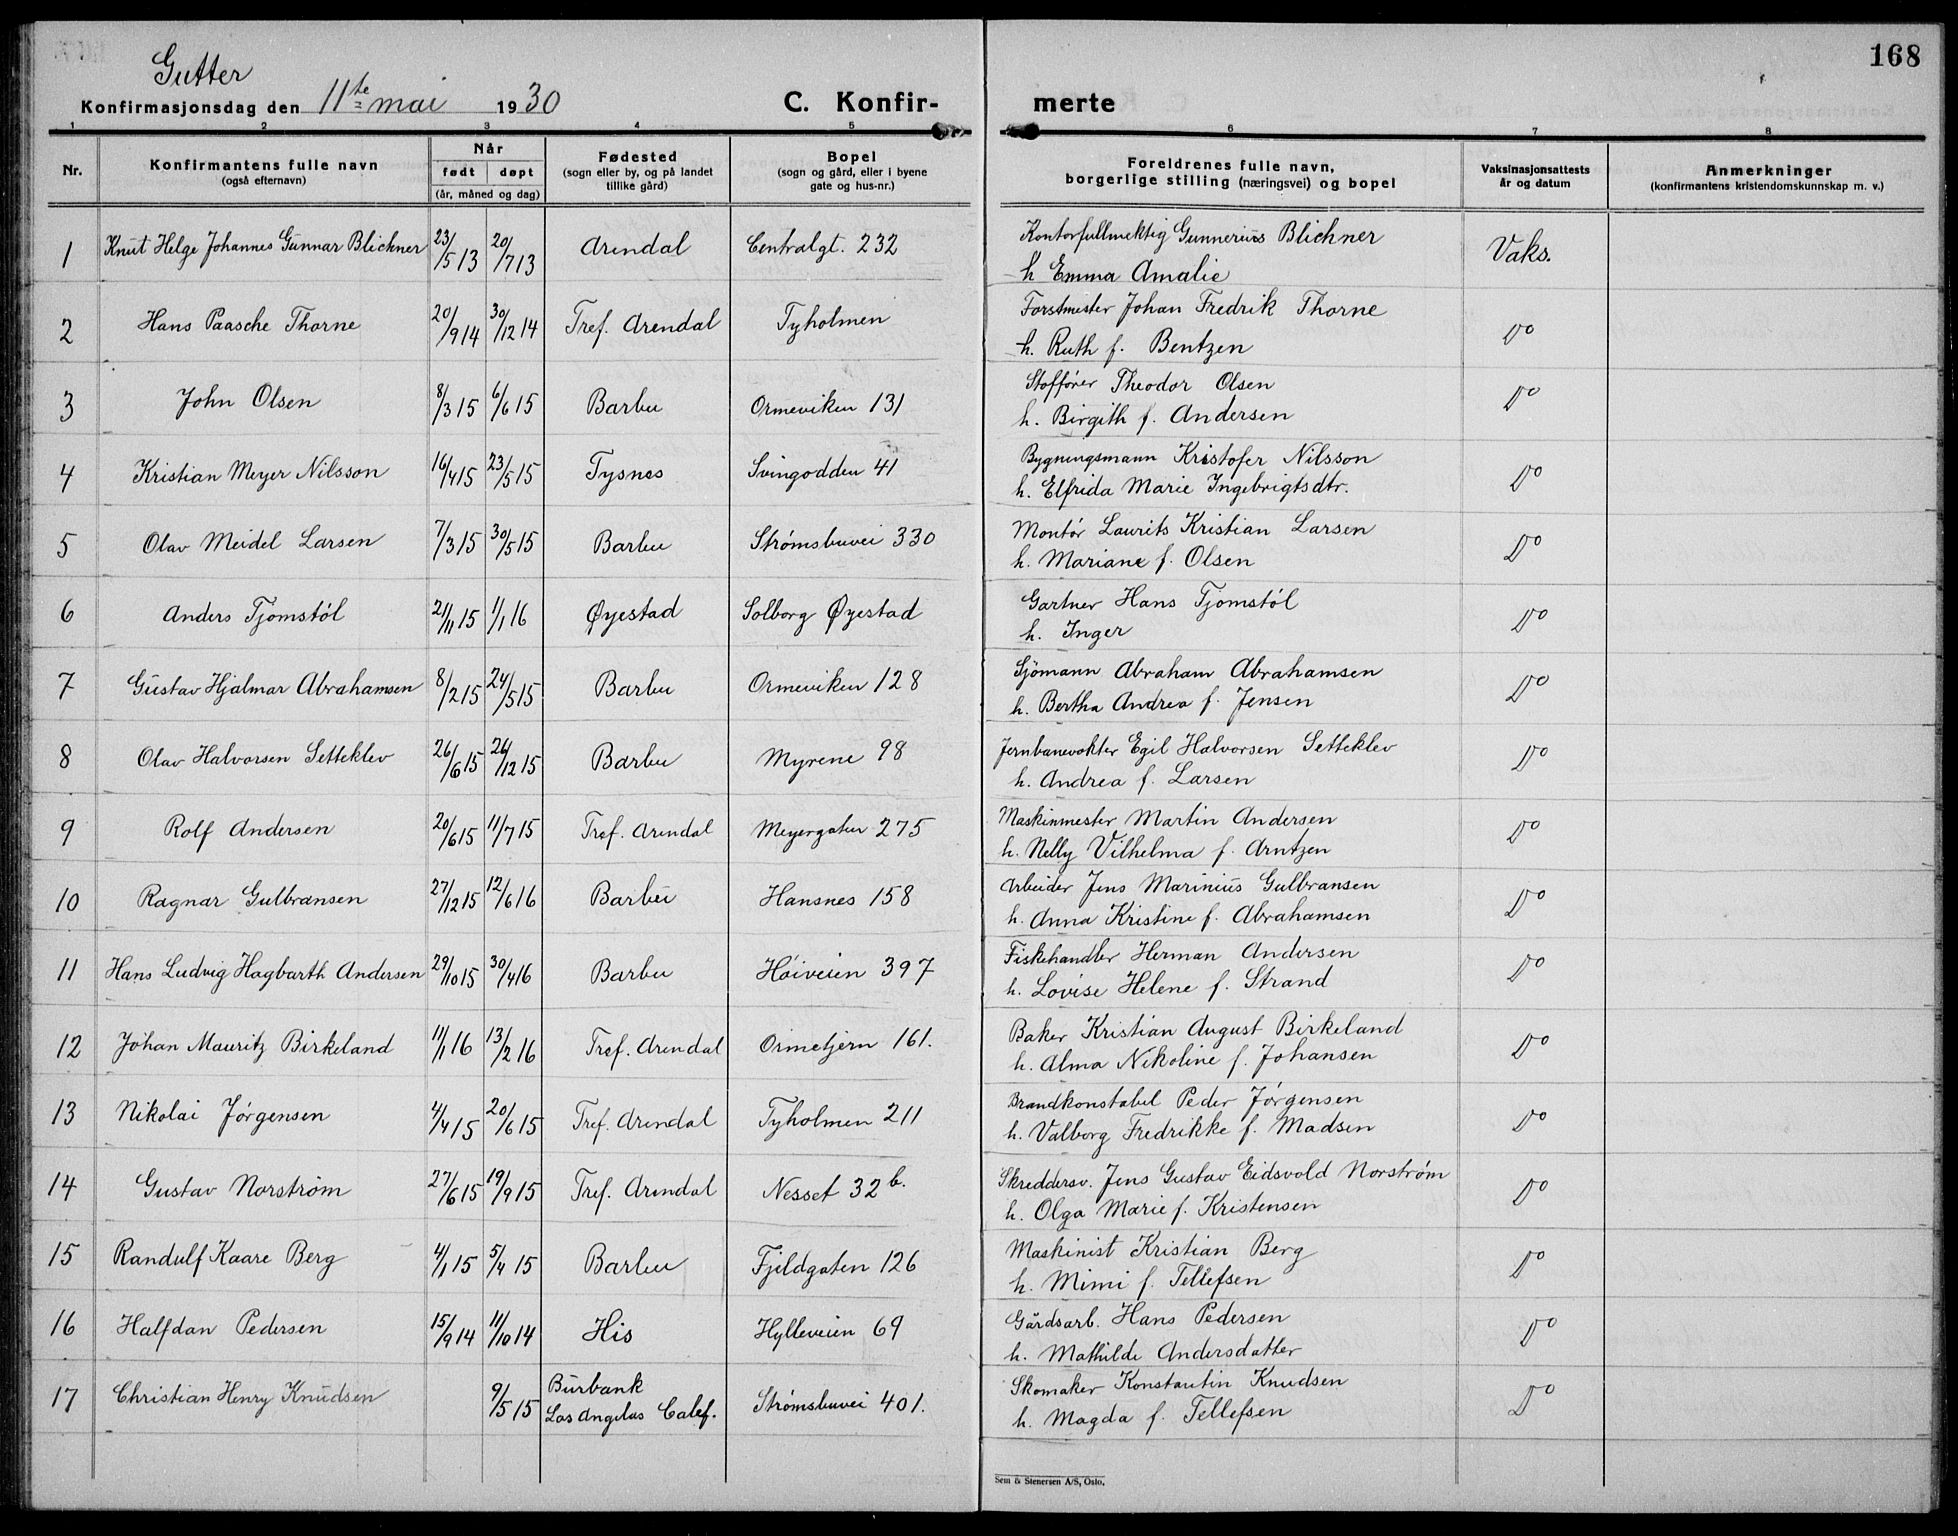 168
Gutter
Konfirmasjonsdag den 11te mai 1930 C. Konfir- merte
1 2 3 4 5 6 7 8
Nr.
Konfirmantens fulle navn
(også efternavn)
Når
født døpt
(år, måned og dag)
Fødested
(sogn eller by, og på landet
tillike gård)
Bopel
(sogn og gård, eller i byene
gate og hus-nr.)
Foreldrenes fulle navn,
borgerlige stilling (næringsvei) og bopel
Vaksinasjonsattests
år og datum
Anmerkninger
(konfirmantens kristendomskunnskap m. v.)
1 Knut Helge Johannes Gunnar Blichner 23/5 13 20/7 13 Arendal Centralgt. 232 Kontorfullmektig Gunnerius Blichner Vaks.
h Emma Amalie
2 Hans Paasche Thorne 20/9 14 30/12 14 Tref. Arendal Tyholmen Forstmester Johan Fredrik Thorne Do
h. Ruth f. Bentzen
3 John Olsen 8/3 15 6/6 15 Barbu Ormeviken 131 Theodor Olsen Do
h. Birgith f. Andersen
4 Kristian Meyer Nilsson 16/4 15 23/5 15 Tysnes Svingodden 41 Bygningsmann Kristofer Nilsson Do
h. Elfrida Marie Ingebrigtsdtr.
5 Olav Meidel Larsen 7/3 15 30/5 15 Barbu Strømsbuvei 330 Montør Laurits Kristian Larsen Do
h. Mariane f. Olsen
6 Anders Tjomstøl 21/11 15 1/1 16 Øyestad Solborg Øyestad Gartner Hans Tjomstøl Do
h. Inger
7 Gustav Hjalmar Abrahamsen 8/2 15 24/5 15 Barbu Ormeviken 128 Sjömann Abraham Abrahamsen Do
h. Bertha Andrea f. Jensen
8 Olav Halvorsen Setteklev 26/6 15 26/12 15 Barbu Myrene 98 Jernbanevokter Egil Halvorsen Setteklev Do
h. Andrea f. Larsen
9 Rolf Andersen 20/6 15 11/7 15 Tref. Arendal Meyergaten 275 Maskinmester Martin Andersen Do
h. Nelly Vilhelma f. Arntzen
10 Ragnar Gulbransen 27/12 15 12/6 16 Barbu Hansnes 158 Arbeider Jens Marinius Gulbransen Do
h. Anna Kristine f. Abrahamsen
11 Hans Ludvig Hagbarth Andersen 29/10 15 30/4 16 Barbu Höiveien 397 Fiskehandler Herman Andersen Do
h. Lovise Helene f. Strand
12 Johan Mauritz Birkeland 11/1 16 13/2 16 Tref. Arendal Ormetjern 161. Baker Kristian August Birkeland Do
h. Alma Nikoline f. Johansen
13 Nikolai Jørgensen 4/4 15 20/6 15 Tref. Arendal Tyholmen 211 Brandkonstabel Peder Jørgensen Do
h. Valborg Fredrikke f. Madsen
14 Gustav Norstrøm 27/6 15 19/9 15 Tref. Arendal Nesset 32 b. Skreddersv. Jens Gustav Eidsvold Norstrøm Do
h. Olga Marie f. Kristensen
15 Randulf Kaare Berg 4/1 15 5/4 15 Barbu Fjeldgaten 126 Maskinist Kristian Berg Do
h. Mimi f. Tellefsen
16 Halfdan Pedersen 15/9 14 11/10 14 His Hylleveien 69 Gårdsarb. Hans Pedersen Do
h. Mathilde Andersdatter
17 Christian Henry Knudsen 9/5 15 Burbank Los Angelas Calef. Strømsbuvei 401. Skomaker Konstantin Knudsen Do
h. Magda f. Tellefsen
Sem & Stenersen A/S, Oslo.